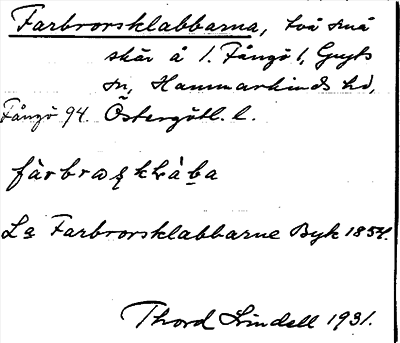 Farbrorsklabbarna, två små
skär å 1. Fångö 1, Gryts
sn, Hammarkinds hd,
Fångö 94. Östergötl. l.
Ls Farbrorsklabbarne Byk 1854.
Thord Lindell 1931.